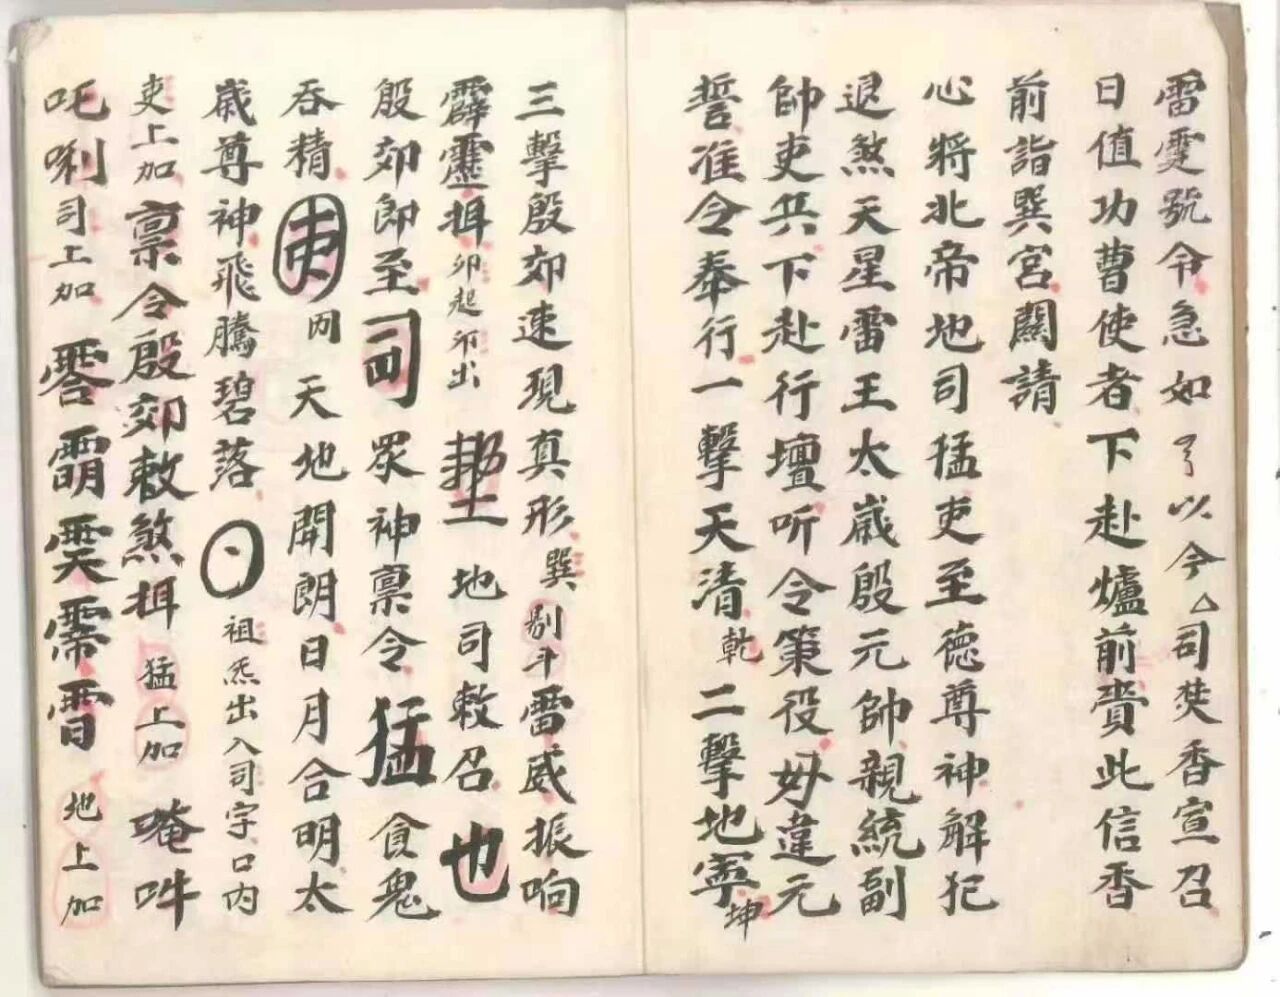 雷霆號令急如了以今△司焚香宣召
日值功曹使者下赴爐前賫此信香
前詣巽宮關請
心將北帝地司猛吏至德尊神解犯
退煞天星雷王太歲殷元帥親統副
帥吏兵下赴行壇听令策役毋違元
誓准令奉行一擊天清乾二擊地寧坤
三擊殷郊速現真形巽剔斗雷威振响
霹靂挕卯起卯出 地司敕召也
殷郊即至司眾神禀令猛食鬼
吞精 丙天地開朗日月合明太
歲尊神飛騰碧落 祖炁出入司字口内
吏上加禀令殷郊敕煞挕猛上加唵吽
吒唎司上加 地上加